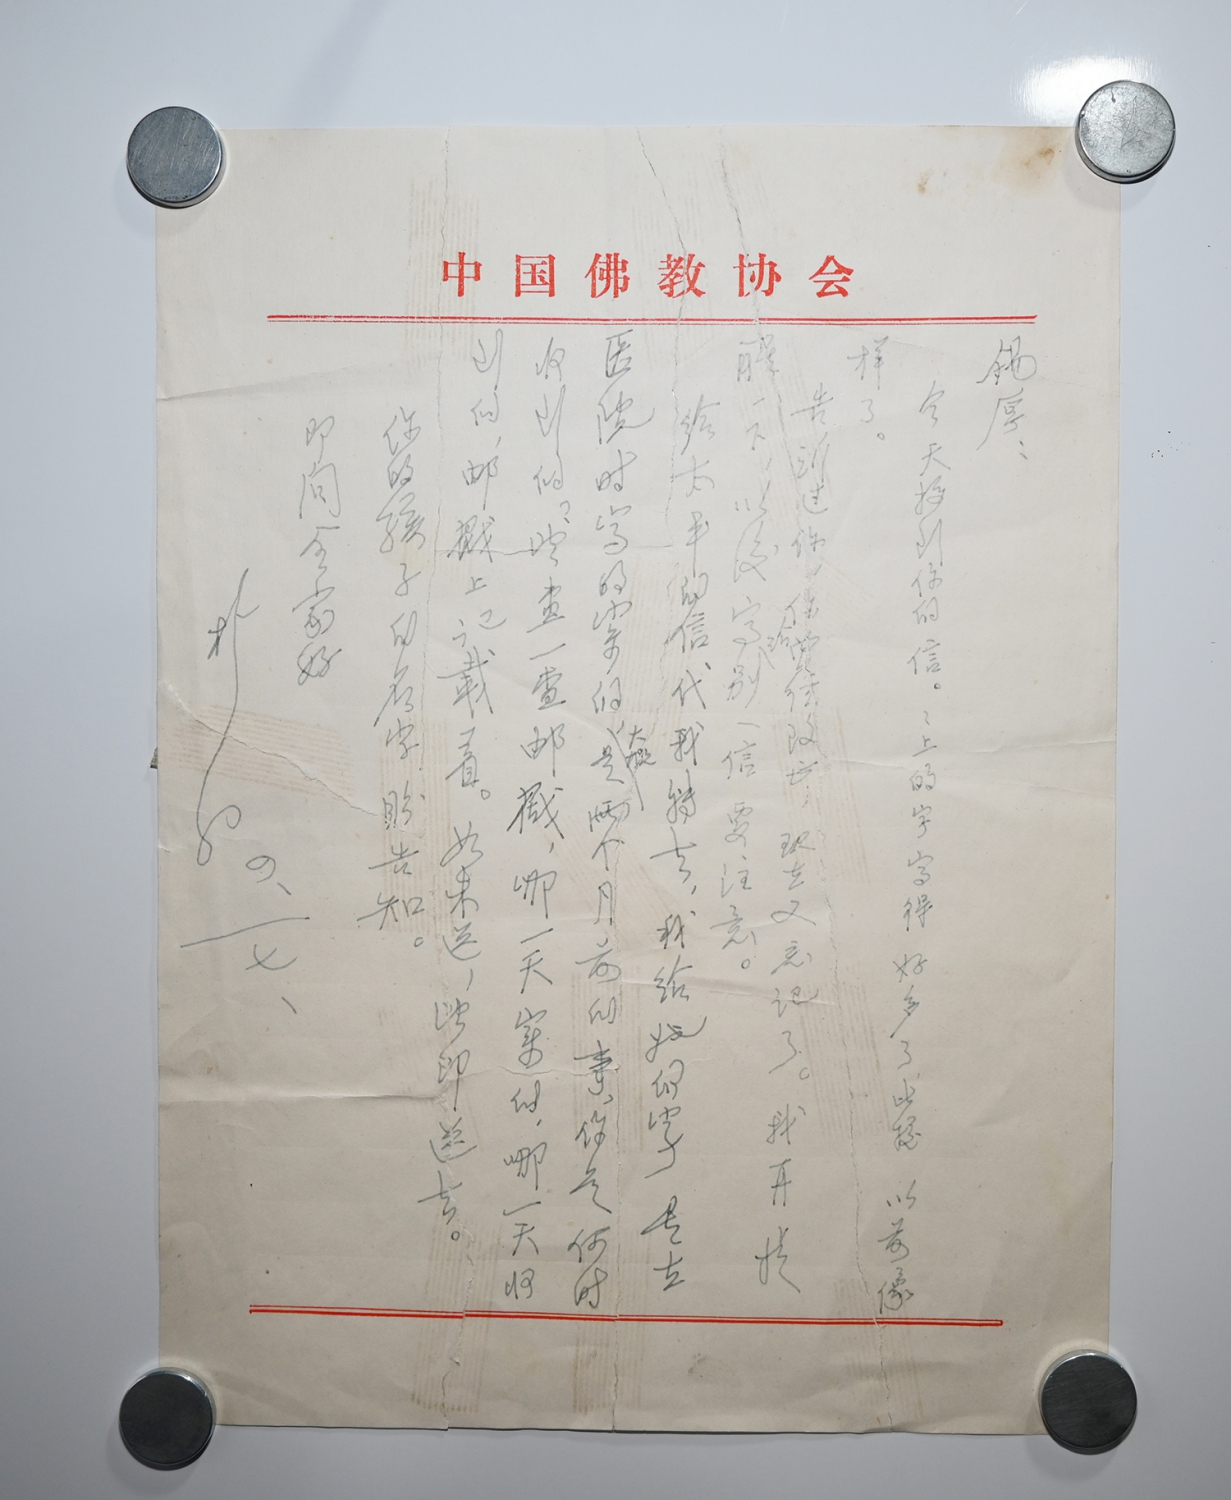 中国佛教协会
锡厚：
今天接到你的信。信上的字写得好多了，比较以前像
样了。
告诉过你，信，现在又忘记了。我再提
醒一下，以后写别信要注意。
给太平的信代我转去，我给她的字是在
医院时写的寄的，是两个月前的事，你是何时
收到的？望查一查邮戳，哪一天寄的，哪一天收
到的，邮戳上记载着。如未送，望即送去。
你的孩子的名字盼告知。
即问全家好
朴初
四、一七、